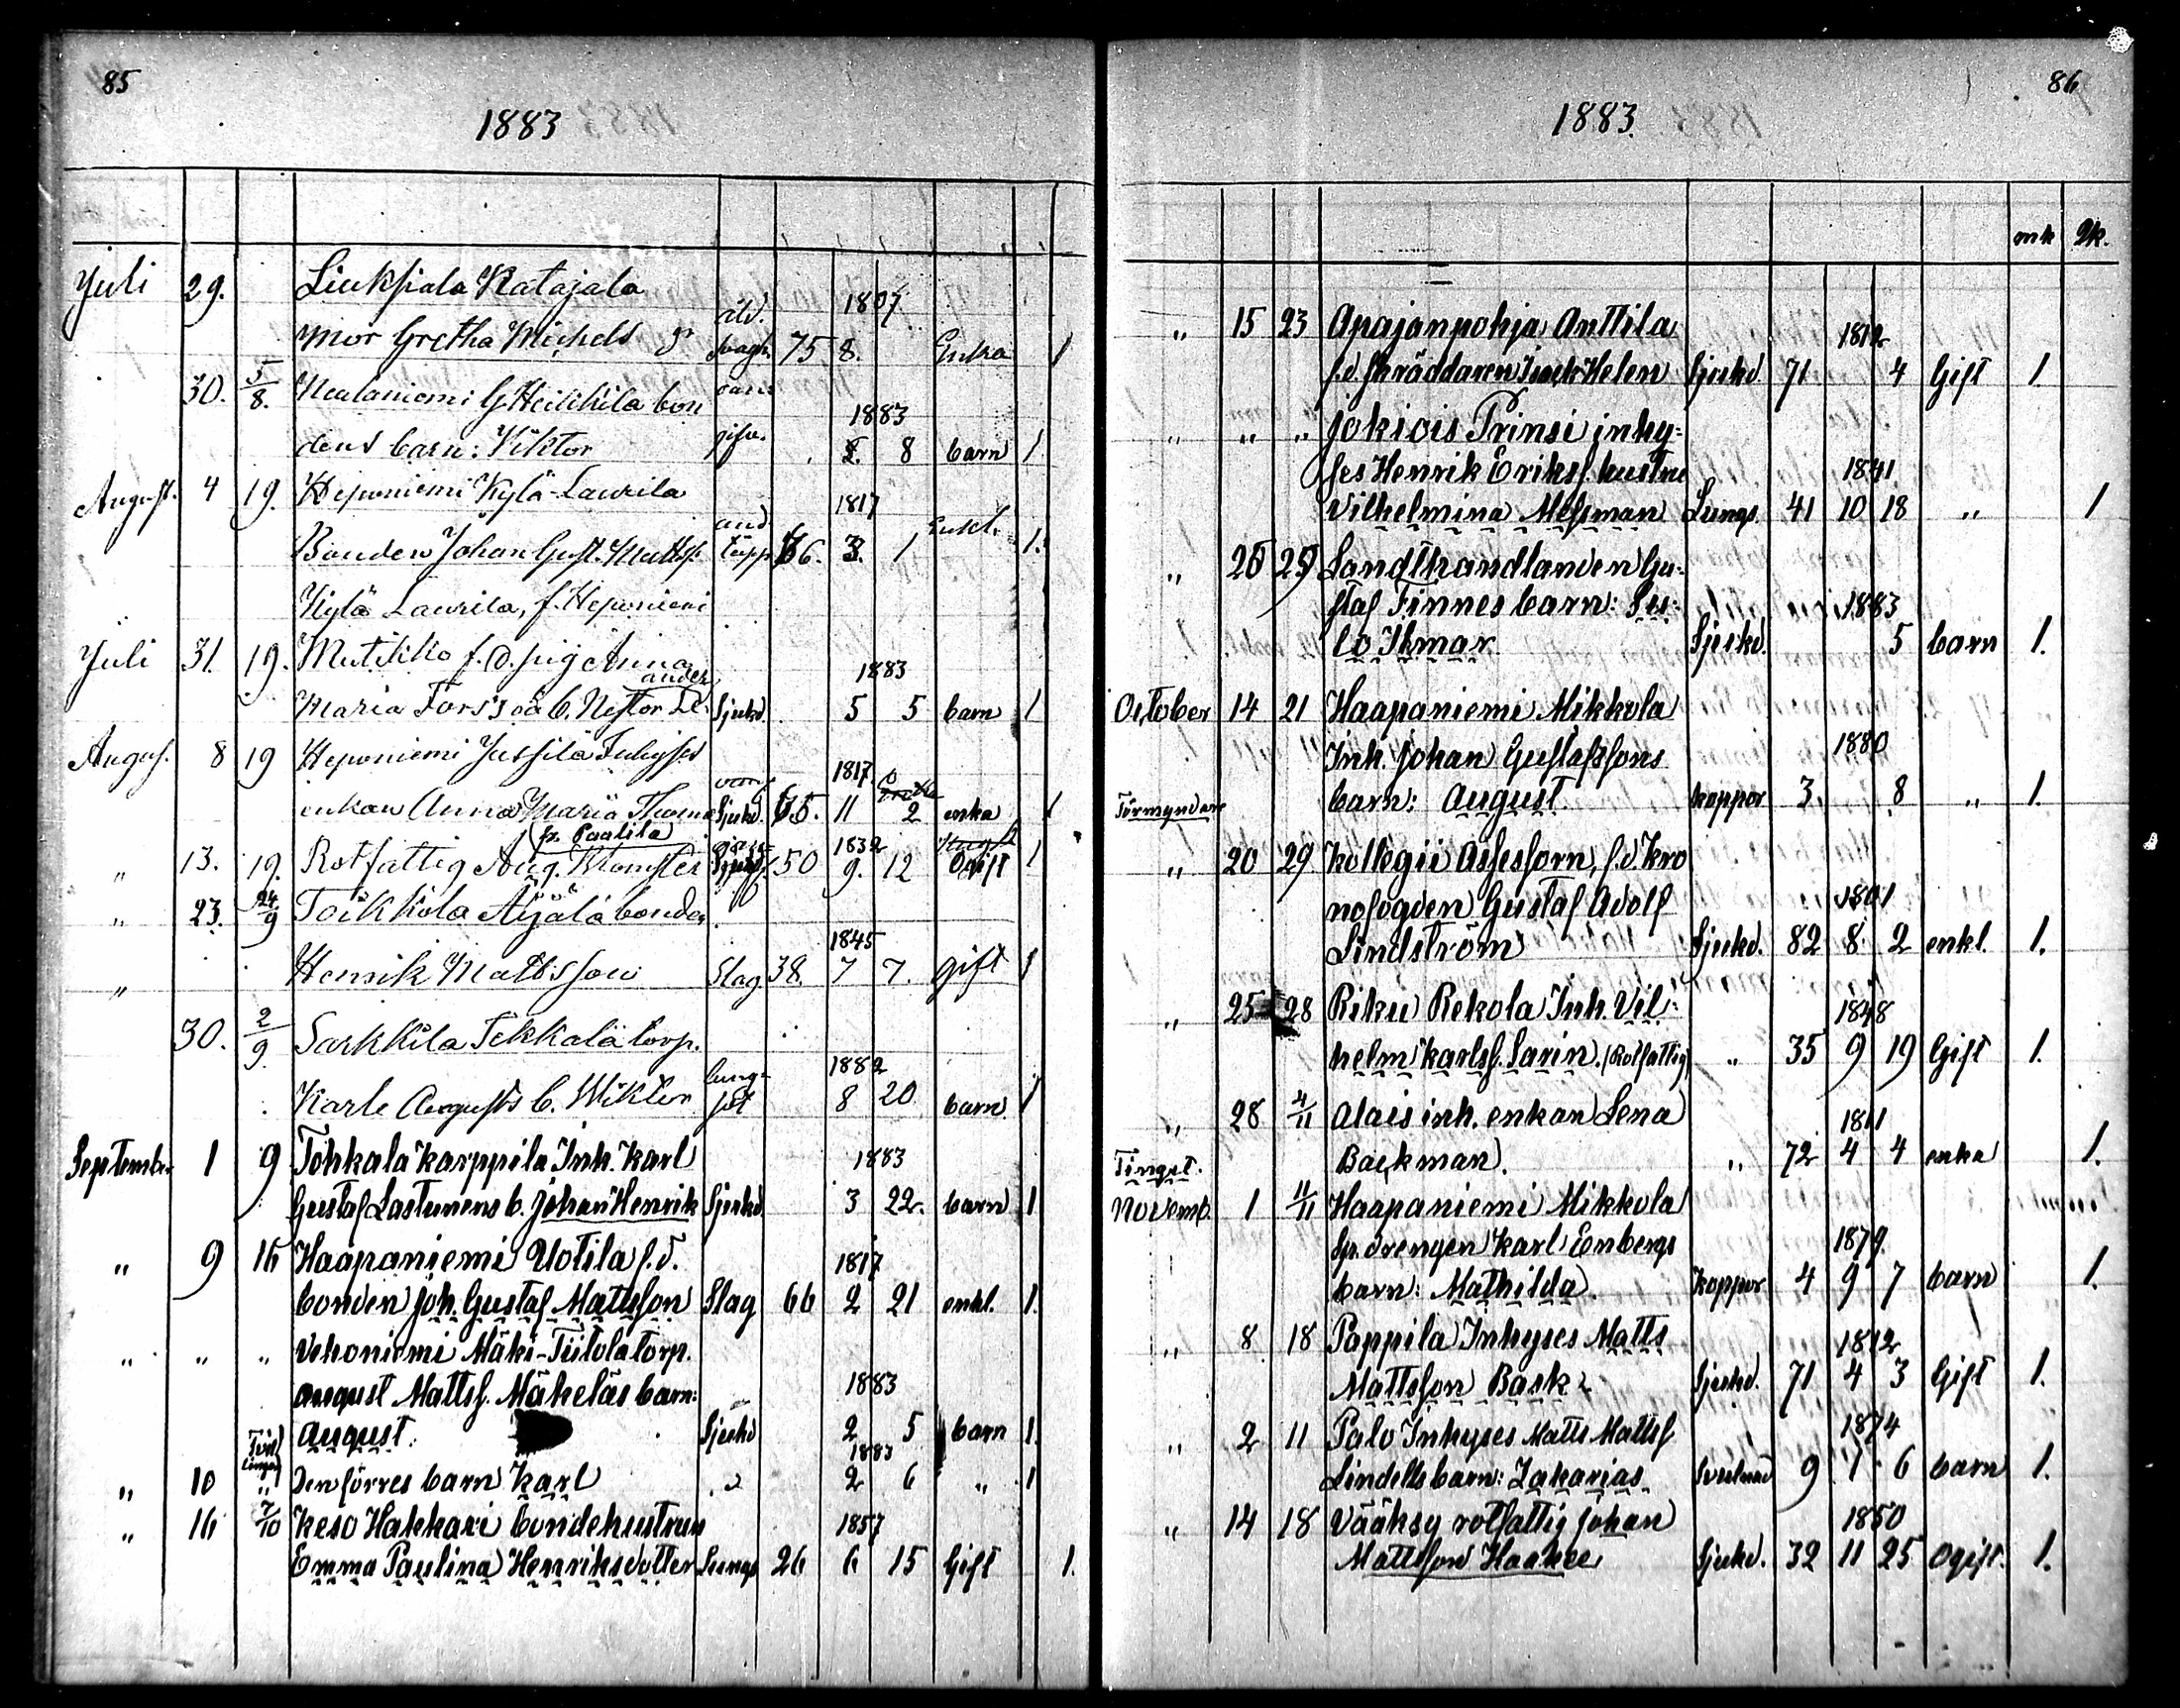 85
1883
Juli 29. Liuksiala Katajala 1807
mor Gretha Michels dr åld. svagh. 75 8. Enka 1
30. 5/8. Neulaniemi G Heikkilä bon 1883
dens barn: Viktor 8 barn 1
August. 4 19. Heponiemi Kylä-Laurila 1817
Bonden Johan Gust. Matts. and. täpp. 66. 3. 1 Enkl. 1.
Kylä Laurila, f. Heponiemi
Juli 31. 19. Mutikko f.d. pig Anna 1883
Maria Forss oä b. Nestor Sjukd. 5 5 barn 1
August. 8 19 Heponiemi Jussila 1817
enkan Anna Maria Thomae Sjukd. 65. 11 2 enka 1
(fr. Paalila) 1832
„ 13. 19. Rotfattig Aug. Blomster 50 9. 12 Ogift 1
„ 23. 24/9 Toikkola Äijälä bonden
„ 1845
Henrik Mattsson Slag 38. 7 7. gift 1
30. 2/9. Sarkkila Tekkala torp.
lung- 1882
Karle Augusts b. Wiktor sot 8 20 barn 1
September 1 9 Tohkala Karppila Inh. Karl 1883
Gustaf Lastunens b. Johan Henrik Sjukd. 3 22. barn 1
„ 9 16 Haapaniemi Uotila f.d. 1817
bonden Joh. Gustaf Mattsson Slag 66 2 21 enkl. 1.
„ „ „ Vehoniemi Mäki-Tiitola torp.
August Mattss. Mäkeläs barn: 1883
August. Sjukd 2 5 barn 1.
Tvil lingar 1883
„ 10 „ Den förres barn Karl „ 2 6 „ 1
„ 16 7/10 Keso Hakkari bondehustrun 1857
Emma Paulina Henriksdotter Lungs 26 6 15 Gift 1.
86
1883.
mk qk.
„ 15 23 Apajanpohja Anttila 1812
f.d. skräddaren Isack Helen Sjukd 71 4 Gift 1.
„ „ „ Jokiois Prinsi inhy-
ses Henrik Erikss. hustru 1841.
Vilhelmina Messman Lungs. 41 10 18 „ 1
„ 25 29 Landthandlanden Gu-
staf Finnes barn: Su- 1883
lo Ilmar Sjukd. 5 barn 1.
October 14 21 Haapaniemi Mikkola
Inh. Johan Gustafssons 1880
Förmyndare barn: August. koppor 3 8 „ 1.
„ 20 29. Kollegii Assessorn, f.d. Kro
nofogden Gustaf Adolf 1801
Lindström Sjukd. 82 8 2 enkl. 1.
„ 25 28 Riku Rekola Inh. Vil- 1848
helm Karlss. Larin. (Rotfattig) „ 35 9 19 Gift 1.
„ 28 4/11 Alais inh. enkan Lena 1811
Tinget. Backman. „ 72 4 4 enka 1.
Novemb. 1 11/11 Haapaniemi Mikkola
Sp. drengen Karl Enbergs 1879.
barn: Mathilda. Koppor 4 9 7 barn 1.
„ 8 18 Pappila Inhyses Matts 1812
Mattsson Bask Sjukd. 71 4 3 Gift 1.
„ 2 11 Palo Inhyses Matts Mattss 1874
Lindells barn: Zakarias. 9 1 6 barn 1.
„ 14 18 Vääksy rotfattig Johan 1850
Mattsson Haakee Sjukd. 32 11 25 Ogift. 1.